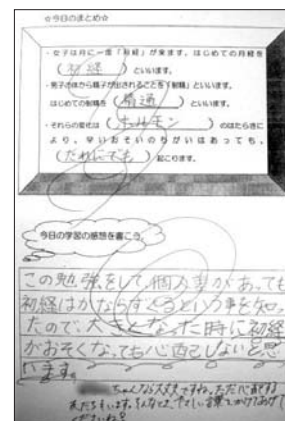 ☆今日のまとめ☆
・女子は月に一度「月経」が来ます。はじめての月経を
(初経)といいます。
・男子の体から精子が出されることを「射精」といいます。
はじめての射精を(精通)といいます。
・それらの変化は(ホルモン)のはたらきに
より、早いおそいのちがいはあっても、
(だれにでも)起こります。
今日の学習の感想を書こう
この勉強をして、個人差があっても
初経はかならずくるという事を知っ
たので、大きくなった時に初経
がおそくなっても心配しないと思
います。
ちゃんなら大丈夫ですね。ただ心配する
友だちもいます。そんな で、やさしい言葉をかけてあげて
くださいね。